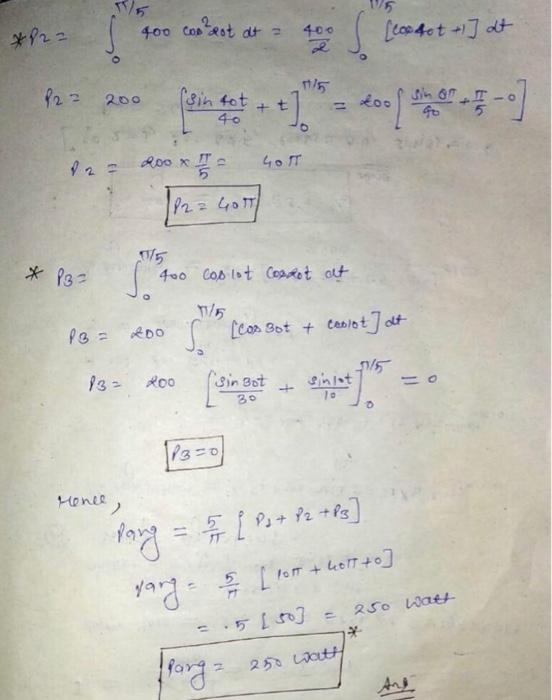 *P2 = ∫₀^π/5 400 cos²20t dt = 400/2 ∫₀^π/5 [cos40t +1] dt
P2 = 200 [sin 40t/40 + t]₀^π/5 = 200 [sin 8π/40 + π/5 - 0]
P2 = 200 × π/5 = 40π
P2 = 40π
* P3 = ∫₀^π/5 400 cos10t cos20t dt
P3 = 200 ∫₀^π/5 [cos 30t + cos10t] dt
P3 = 200 [sin 30t/30 + sin10t/10]₀^π/5 = 0
P3 = 0
Hence,
Pavg = 5/π [P1 + P2 + P3]
Pavg = 5/π [10π + 40π + 0]
= .5 [50] = 250 watt
Pavg = 250 watt *
Ans